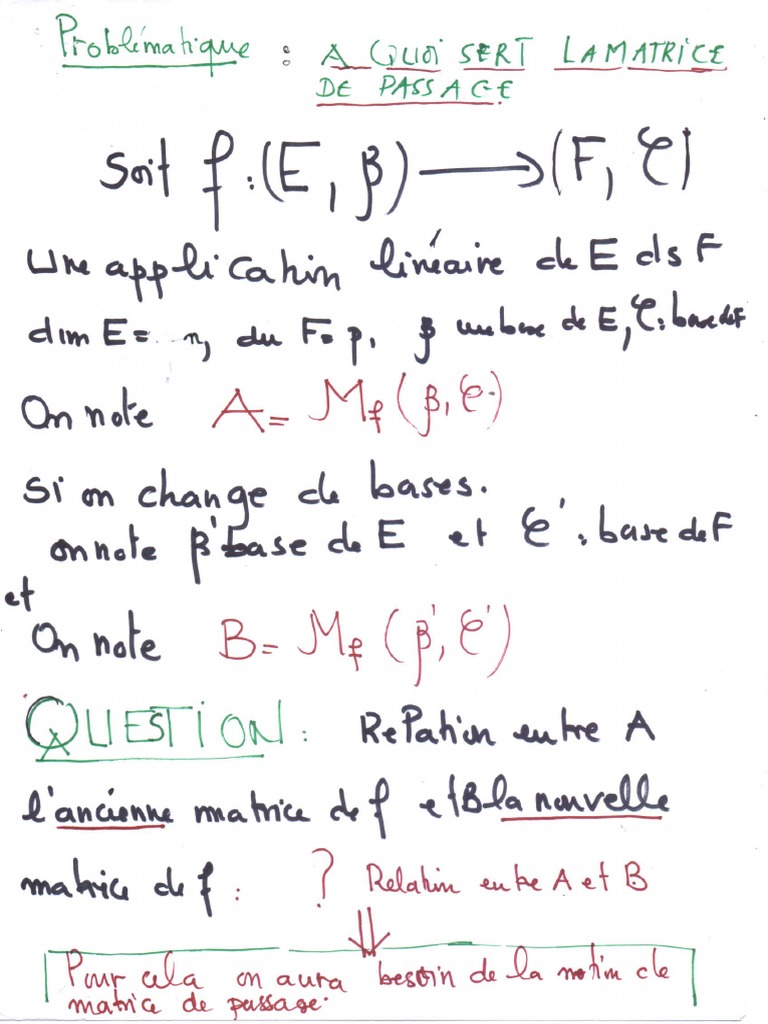 Problématique : A QUOI SERT LA MATRICE
DE PASSAGE
Soit f : (E, β) ⟶ (F, 𝒞)
Une application linéaire de E ds F
dim E = n, dim F = p. β une base de E, 𝒞 : base de F
On note A = M_f (β, 𝒞)
Si on change de bases.
on note β' base de E et 𝒞' : base de F
et
On note B = M_f (β', 𝒞')
QUESTION : Relation entre A
l'ancienne matrice de f et B la nouvelle
matrice de f : ? Relation entre A et B
⇓
Pour cela on aura besoin de la notion de
matrice de passage.